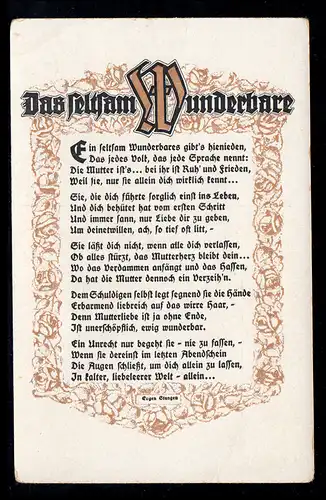 Das seltsam Wunderbare
Ein seltsam Wunderbares gibt's hienieden,
Das jedes Volk, das jede Sprache nennt:
Die Mutter ist's... bei ihr ist Ruh' und Frieden,
Weil sie, nur sie allein dich wirklich kennt...
Sie, die dich führte sorglich einst ins Leben,
Und dich behütet hat vom ersten Schritt
Und immer sann, nur Liebe dir zu geben,
Um deinetwillen, ach, so tief oft litt, -
Sie läßt dich nicht, wenn alle dich verlassen,
Ob alles stürzt, das Mutterherz bleibt dein...
Wo das Verdammen anfängt und das Hassen,
Da hat die Mutter dennoch ein Verzeih'n.
Dem Schuldigen selbst legt segnend sie die Hände
Erbarmend liebreich auf das wirre Haar, -
Denn Mutterliebe ist ja ohne Ende,
Ist unerschöpflich, ewig wunderbar.
Ein Unrecht nur begeht sie - nie zu fassen, -
Wenn sie dereinst im letzten Abendschein
Die Augen schließt, um dich allein zu lassen,
In kalter, liebeleerer Welt - allein...
Eugen Stangen